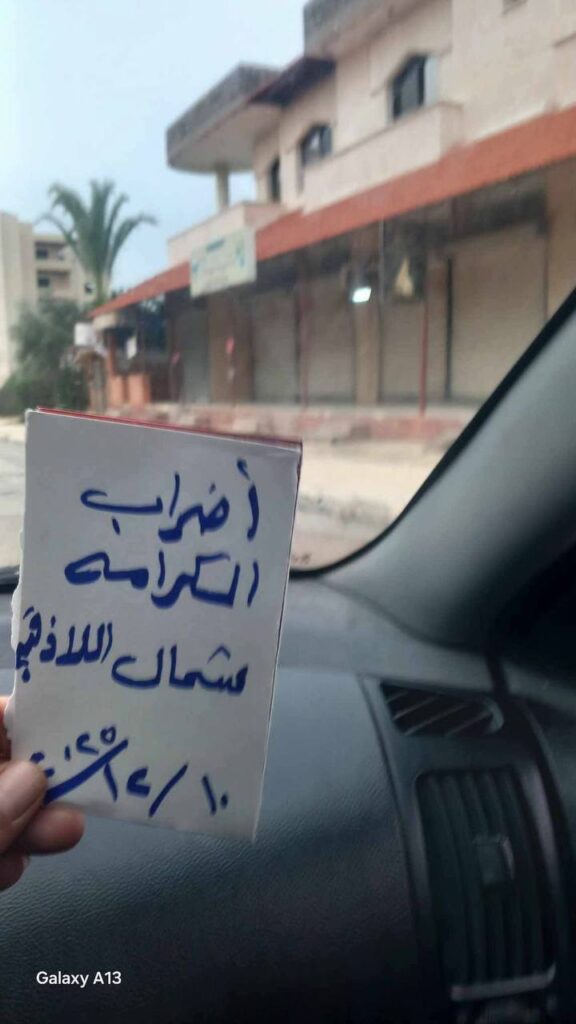 أضراب
الكرامه
شمال اللاذقية
١٠/١٢/٢٠٢٥
Galaxy A13